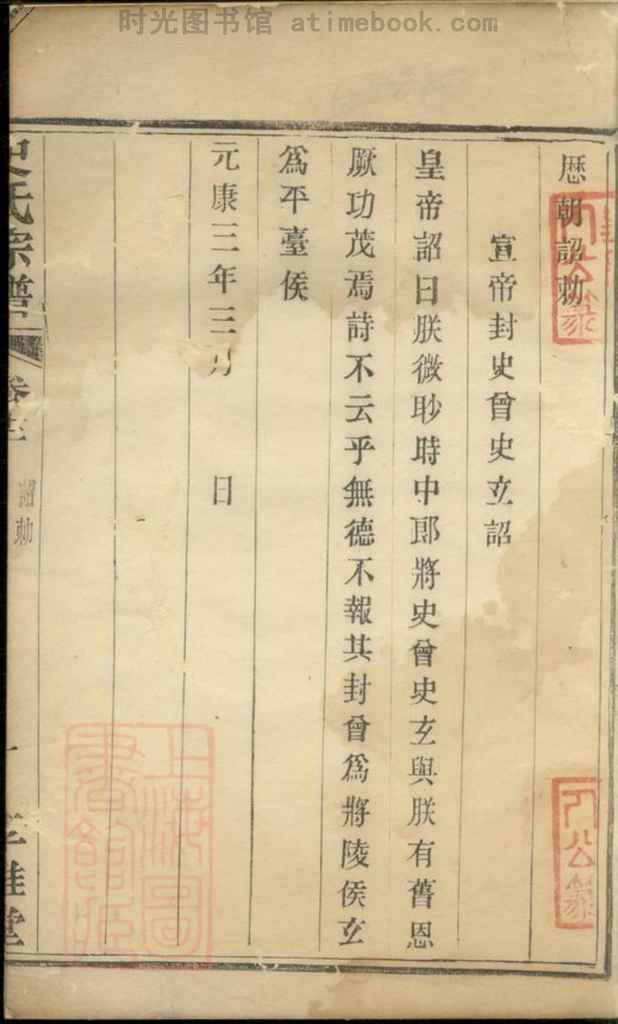 时光图书馆 atimebook.com
歷朝詔勅
宣帝封史曾史玄詔
皇帝詔曰朕微眇時中郎將史曾史玄與朕有舊恩
厥功茂焉詩不云乎無德不報其封曾爲將陵侯玄
爲平臺侯
元康三年三月 日
史氏宗譜 卷 詔勅
上海圖書館藏